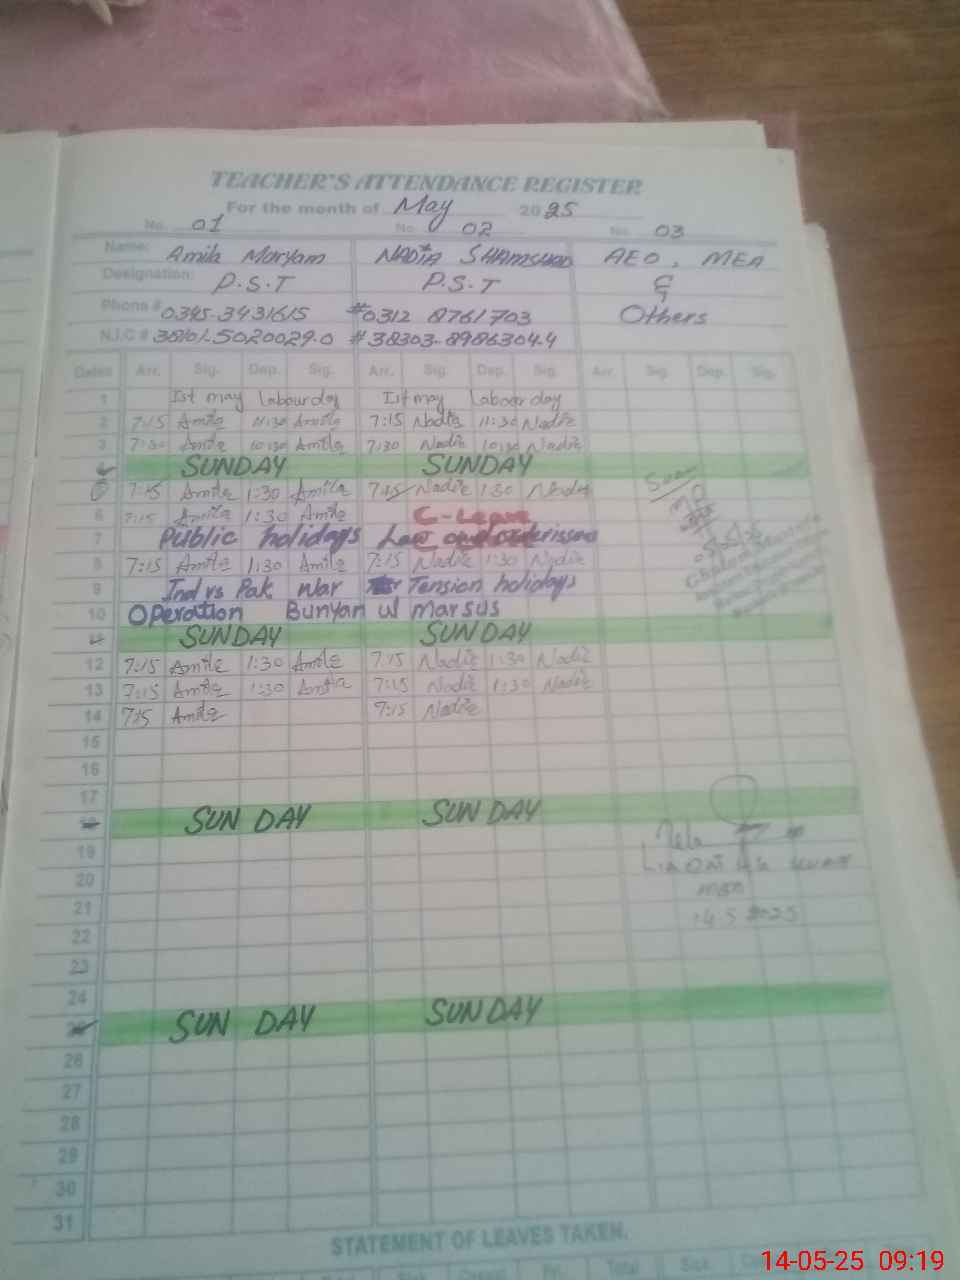 TEACHER'S ATTENDANCE REGISTER
For the month of May 2025
No. 01 No. 02 No. 03
Name: Amila Maryam NADIA SHAMSHAD AEO, MEA
Designation: P.S.T P.S.T &
Phone # 0345-3431615 #0312 8761703 Others
N.I.C # 38101-5020029-0 # 38303-8986304-4
Dates Arr. Sig. Dep. Sig. Arr. Sig. Dep. Sig. Arr. Sig. Dep. Sig.
1 Ist may labour day Ist may labour day
2 7:15 Amila 11:30 Amila 7:15 Nadia 11:30 Nadia
3 7:30 Amila 10:30 Amila 7:30 Nadia 10:30 Nadia
SUNDAY SUNDAY
7:15 Amila 1:30 Amila 7:15 Nadia 1:30 Nadia
6 7:15 Amila 1:30 Amila C-Leave
7 Public holidays Law
8 7:15 Amila 1:30 Amila 7:15 Nadia 1:30 Nadia
9 Ind vs Pak War Tension holidays
10 Operation Bunyan ul marsus
SUNDAY SUNDAY
12 7:15 Amila 1:30 Amila 7:15 Nadia 1:30 Nadia
13 7:15 Amila 1:30 Amila 7:15 Nadia 1:30 Nadia
14 7:15 Amila 7:15 Nadia
15
16
17
SUNDAY SUNDAY
19
20
LIAQAT
21
14.5.2025
22
23
24
SUNDAY SUNDAY
26
27
28
29
30
31
STATEMENT OF LEAVES TAKEN.
Total Sick
14-05-25 09:19